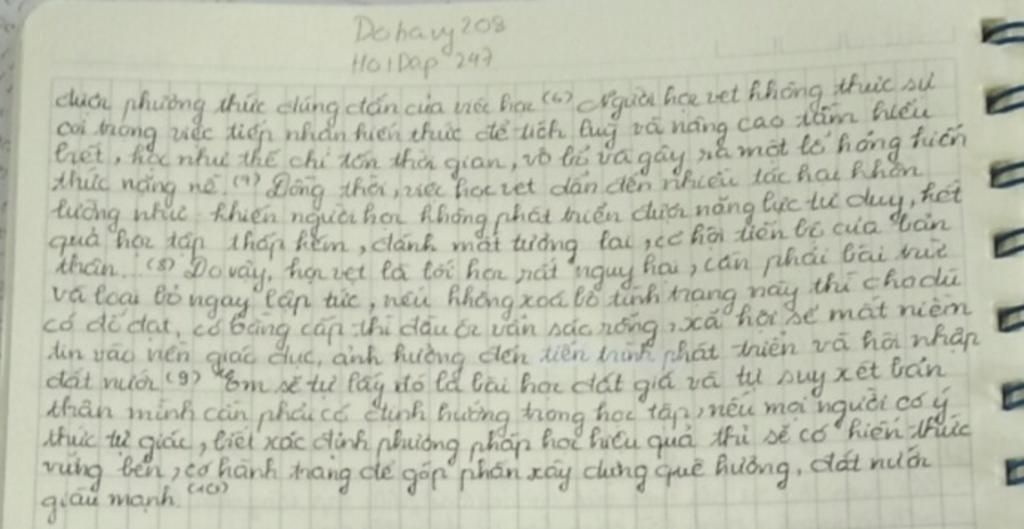 Dohavy208
HoiDap 247
được phương thức đúng đắn của việc học (6) Người học vẹt không thực sự
coi trọng việc tiếp nhận kiến thức để tích luỹ và nâng cao tầm hiểu
biết, học như thế chỉ tốn thời gian, vô bổ và gây ra một lỗ hổng kiến
thức nặng nề (7) Đồng thời, việc học vẹt dẫn đến nhiều tác hại khôn
lường như: khiến người học không phát triển được năng lực tư duy, kết
quả học tập thấp kém, đánh mất tương lai, cơ hội tiến bộ của bản
thân. (8) Do vậy, học vẹt là lối học rất nguy hại, cần phải bài trừ
và loại bỏ ngay lập tức, nếu không xoá bỏ tình trạng này thì cho dù
có đỗ đạt, có bằng cấp thì đầu óc vẫn sáo rỗng, xã hội sẽ mất niềm
tin vào nền giáo dục, ảnh hưởng đến tiến trình phát triển và hội nhập
đất nước (9) Em sẽ tự lấy đó là bài học đắt giá và tự suy xét bản
thân mình cần phải có định hướng trong học tập, nếu mọi người có ý
thức tự giác, biết xác định phương pháp học hiệu quả thì sẽ có kiến thức
vững bền, có hành trang để góp phần xây dựng quê hương, đất nước
giàu mạnh. (10)